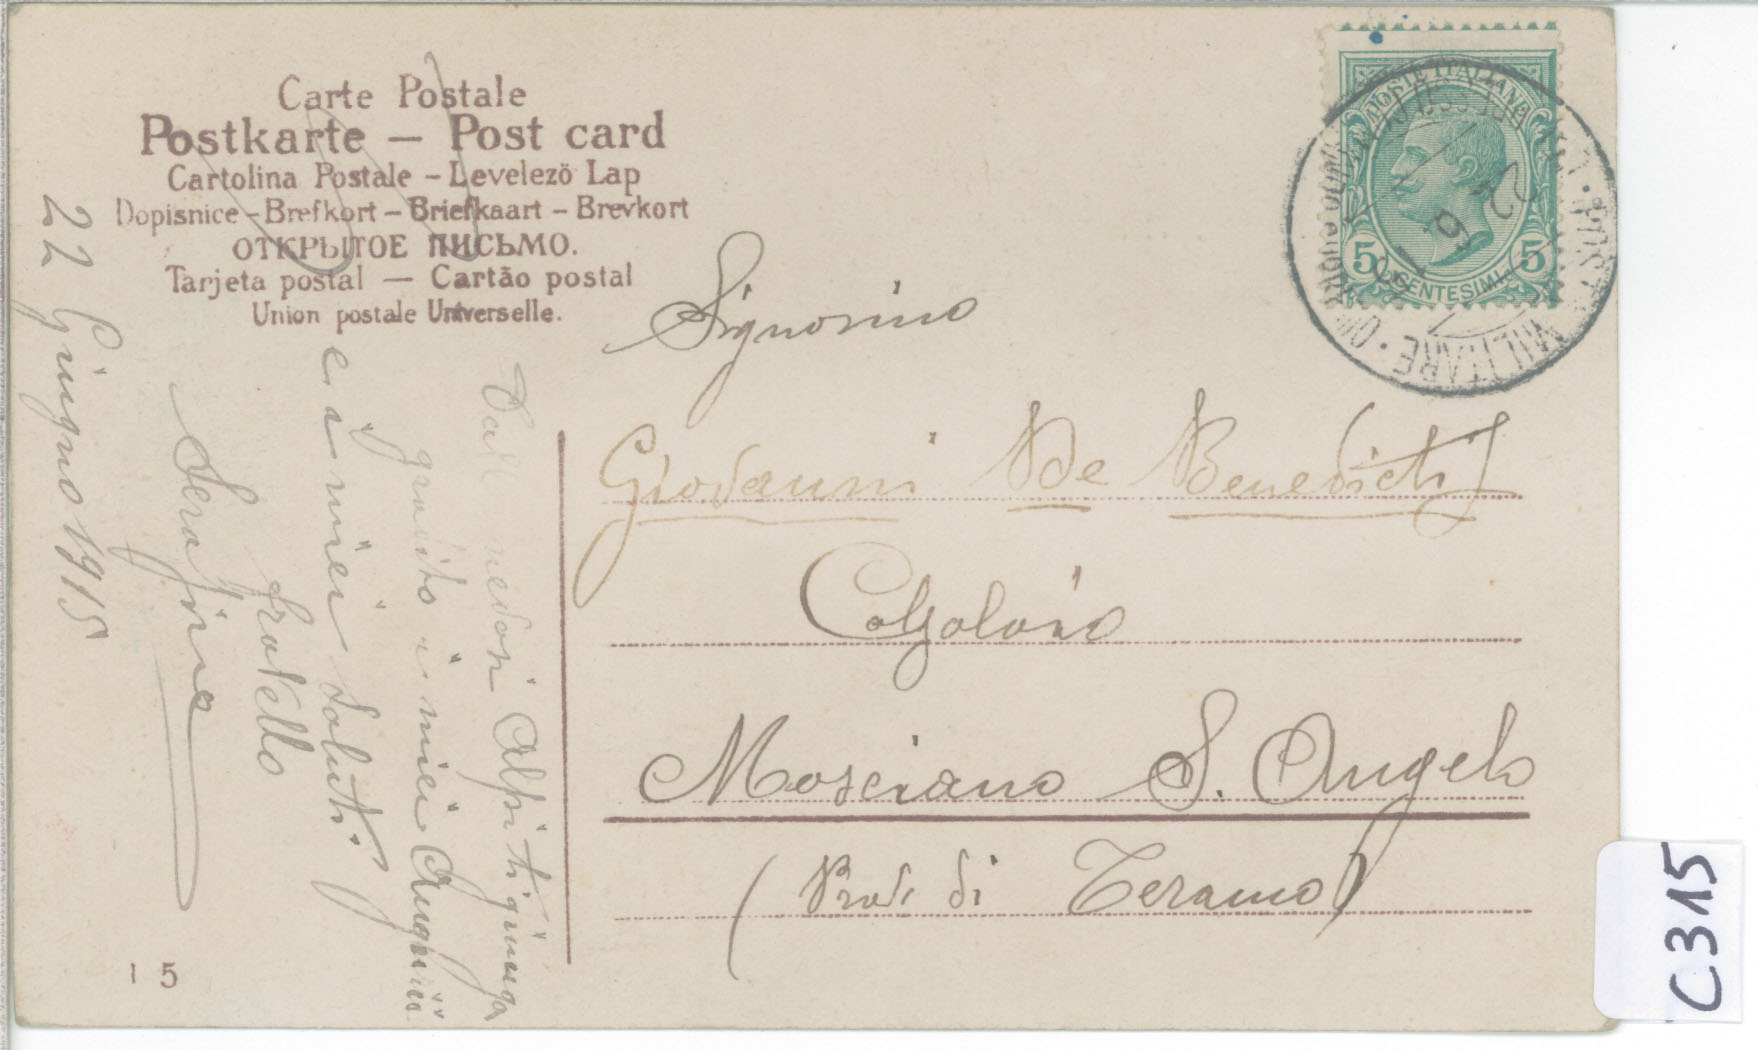 Carte Postale
Postkarte — Post card
Cartolina Postale - Levelezö Lap
Dopisnice - Brefkort - Briefkaart - Brevkort
ОТКРЫТОЕ ПИСЬМО.
Tarjeta postal — Cartão postal
Union postale Universelle.
POSTE ITALIANE
5 CENTESIMI 5
POSTA MILITARE
22
Signorino
Giovanni De Benedictis
Calzolaio
Mosciano S. Angelo
(Prov. di Teramo)
Dalle Alpi ti giunga
gradito i miei Auguri
e i miei Saluti.
fratello
Serafino
22 Giugno 1915
15
C315